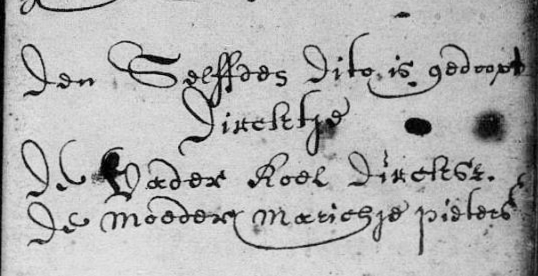 Den Selffdes dito is gedoopt
Dircktje
De Vader Roel Dircksz.
de Moeder Marichje pieters